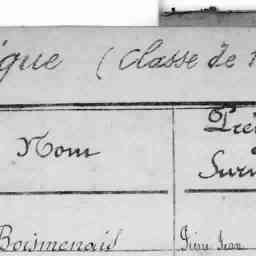 ique (Classe de 1
Nom
Pré
Surn
Boismenais
Pierre Jean